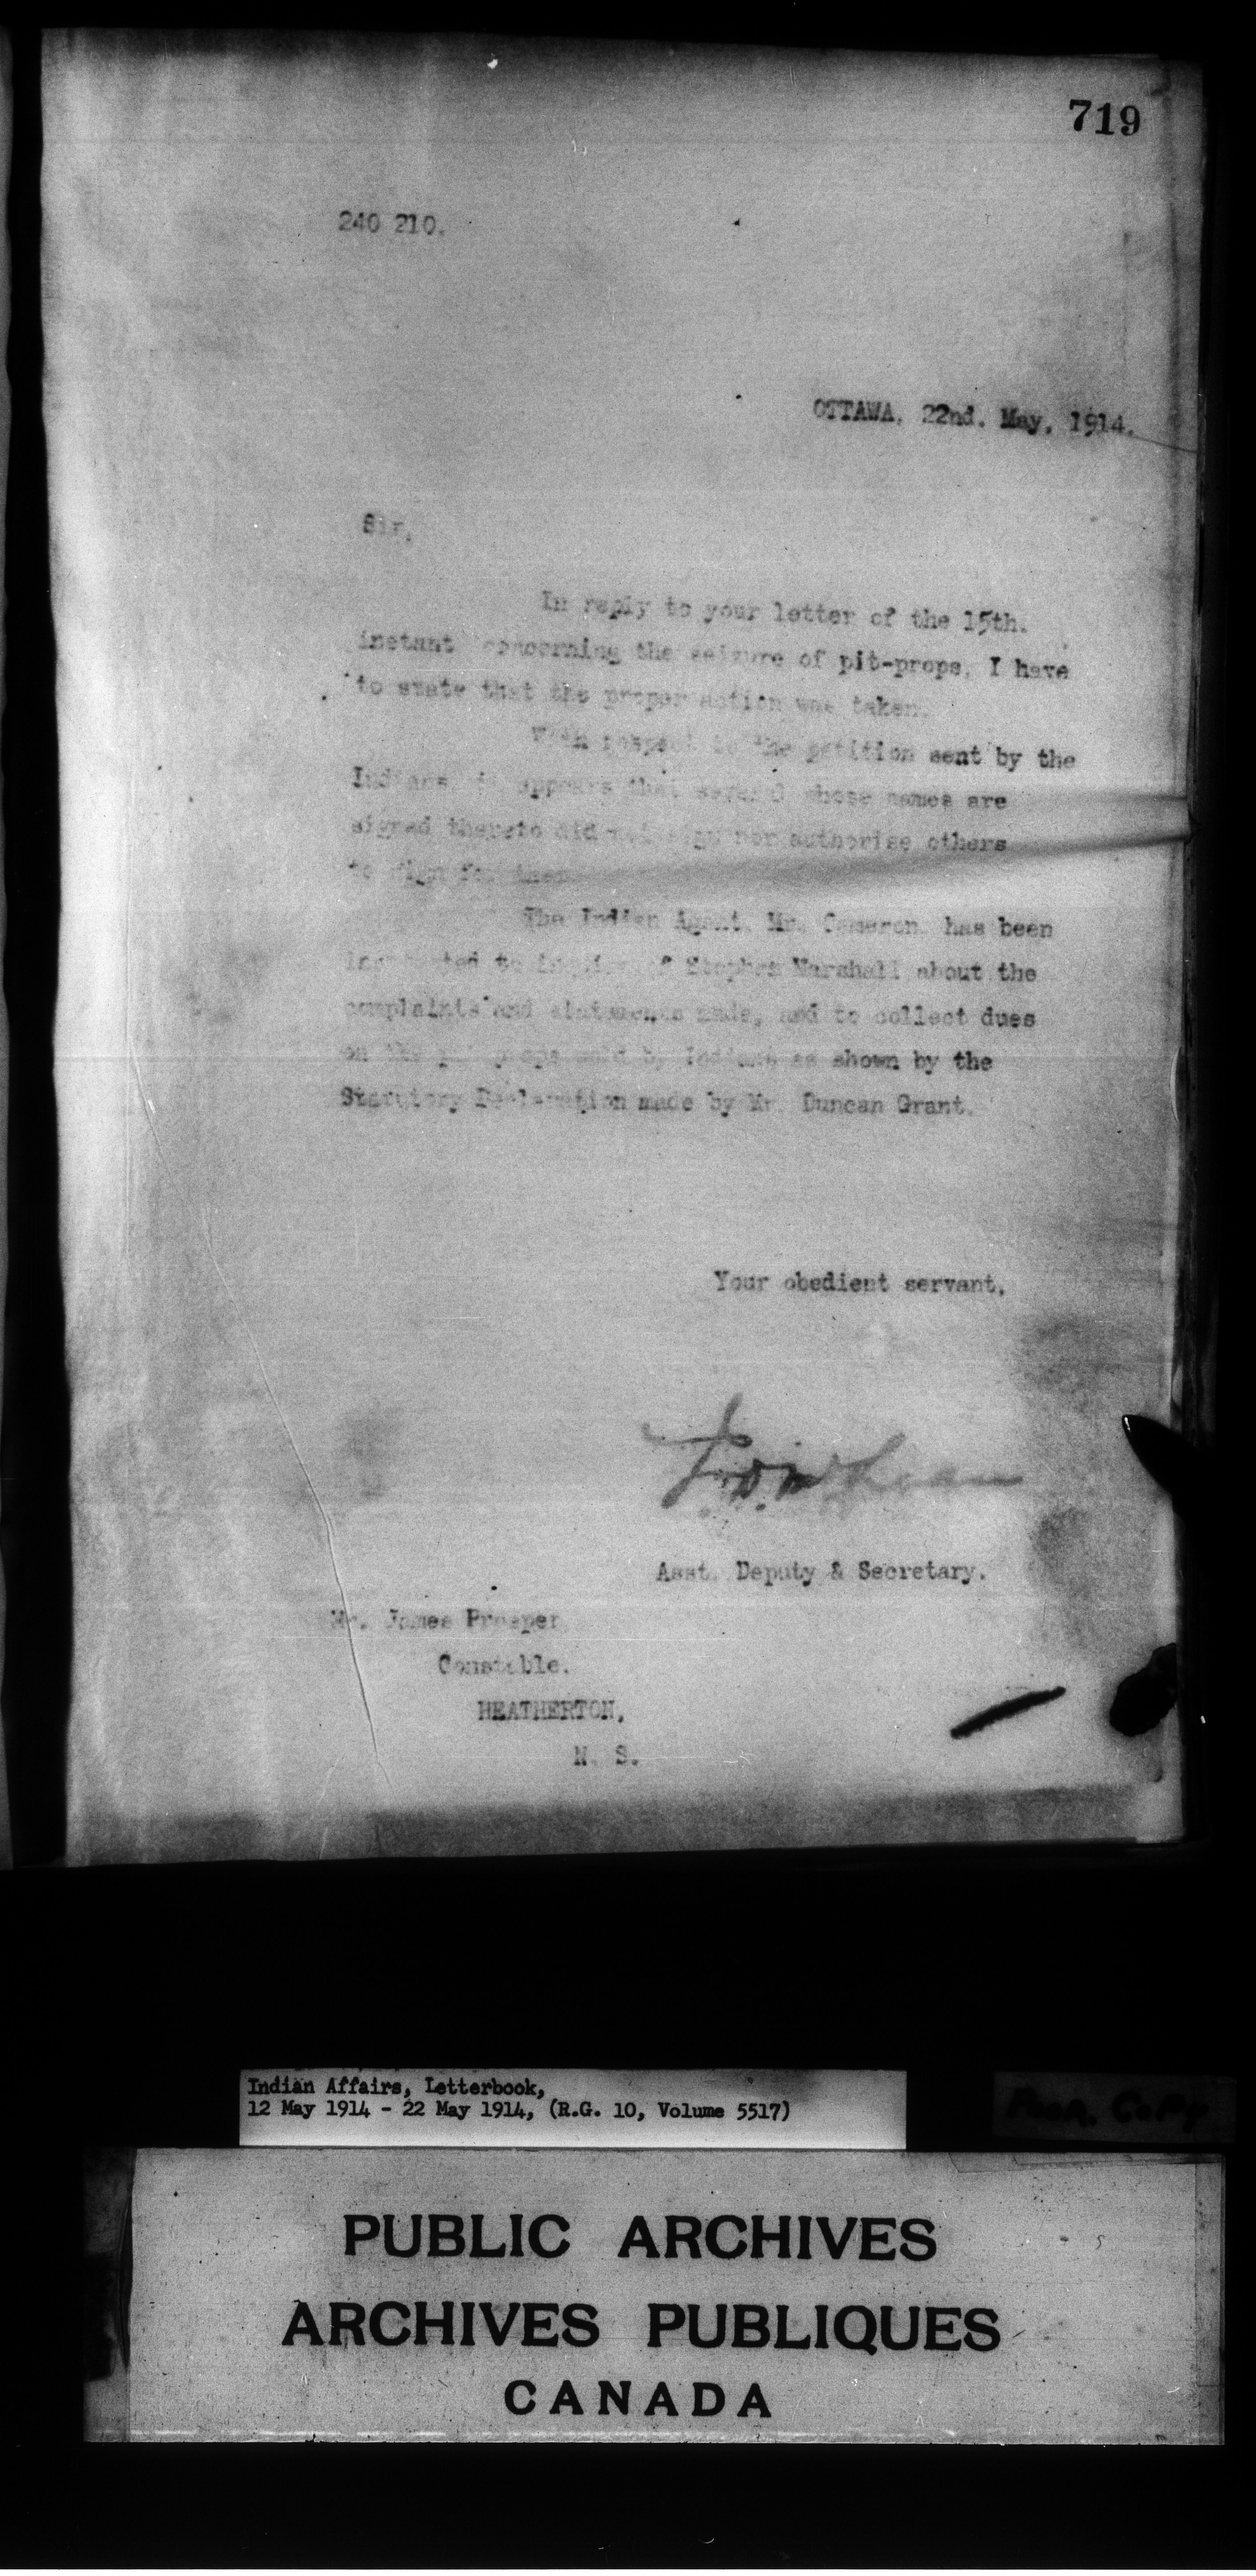 719
240 210.
OTTAWA, 22nd. May, 1914.
Sir,
In reply to your letter of the 15th.
instant concerning the seizure of pit-props, I have
to state that the proper action was taken.
With respect to the petition sent by the
Indians, it appears that several whose names are
signed thereto did not sign nor authorise others
to sign for them.
The Indian Agent, Mr. Cameron, has been
instructed to inquire of Stephen Marshall about the
complaints and statements made, and to collect dues
on the pit props sold by Indians as shown by the
Statutory Declaration made by Mr. Duncan Grant.
Your obedient servant,
Asst. Deputy & Secretary.
Mr. James Prosper,
Constable,
HEATHERTON,
N. S.
Indian Affairs, Letterbook,
12 May 1914 - 22 May 1914, (R.G. 10, Volume 5517)
PUBLIC ARCHIVES
ARCHIVES PUBLIQUES
CANADA